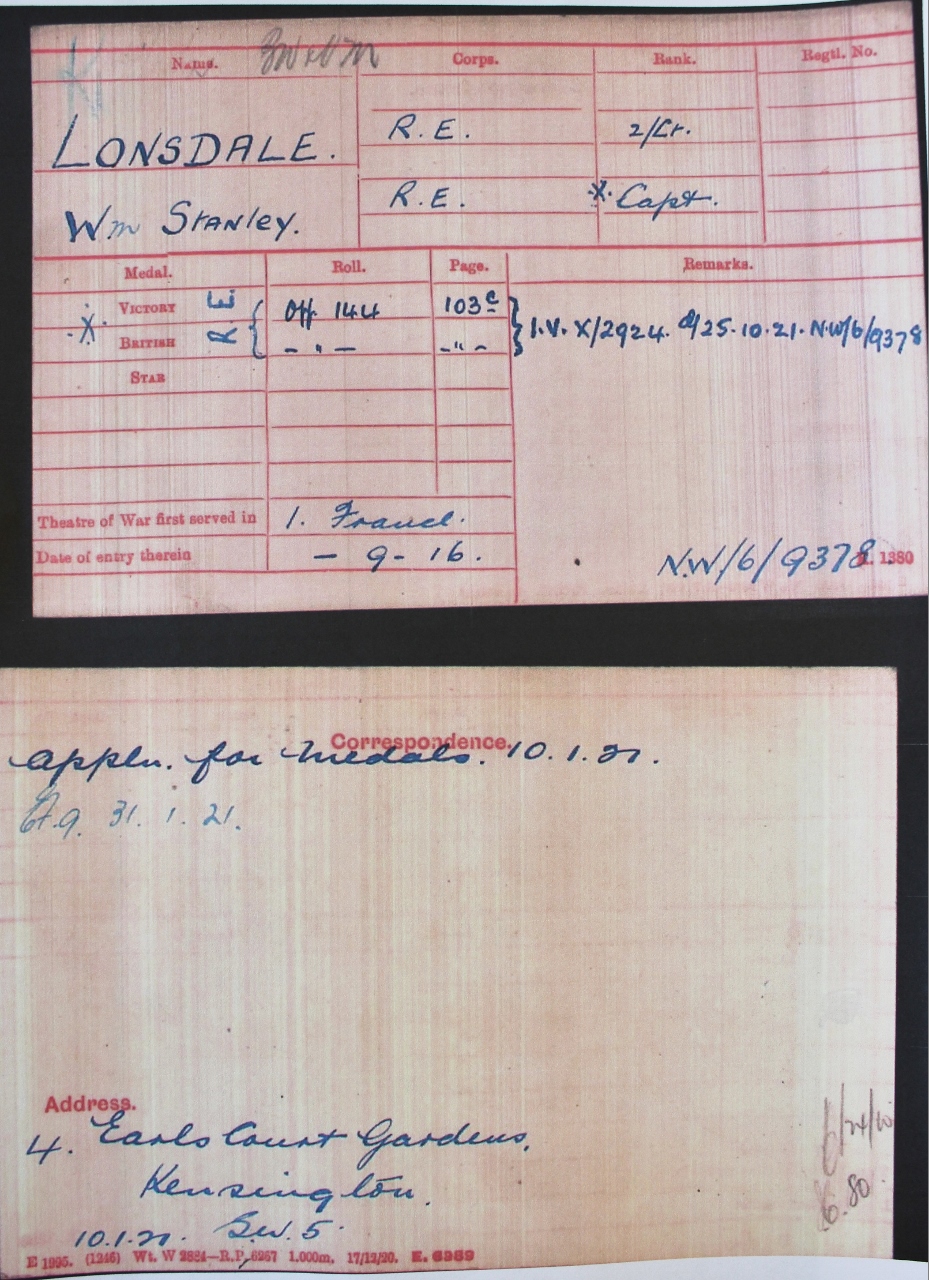 Name. BW & VM Corps. Rank. Regtl. No.
LONSDALE. R.E. 2/Lt.
Wm Stanley. R.E. X Capt.
Medal. Roll. Page. Remarks.
X VICTORY R E { Off 144 103c } I.V. X/2924. d/25.10.21. N.W/6/9378
BRITISH - " - - " -
STAR
Theatre of War first served in 1. France.
Date of entry therein - 9 - 16.
N.W/6/9378. 1380
Correspondence.
Appln. for Medals. 10.1.21.
31.1.21.
Address.
4. Earls Court Gardens,
Kensington.
10.1.21. S.W.5
E 1995. (1246) Wt. W 2884—R.P. 6267 1.000m. 17/12/20. E. 6989